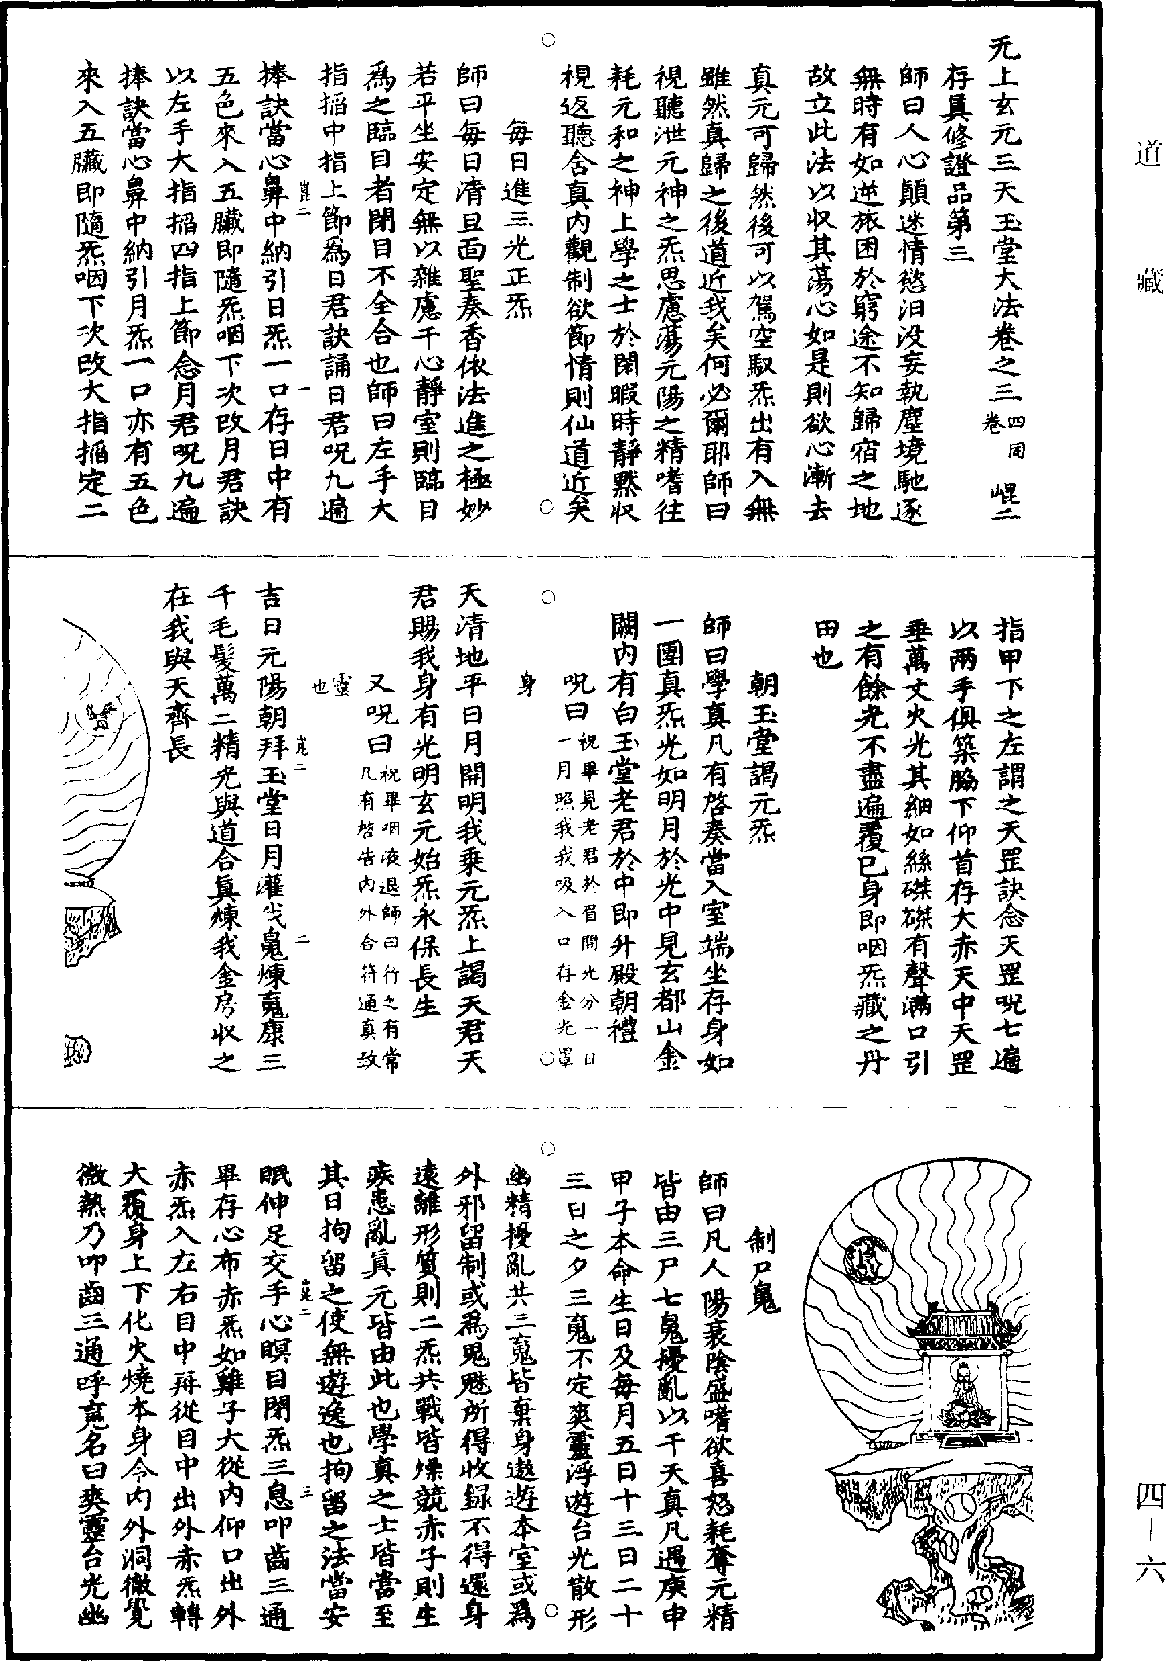 道藏
四—六
无上玄元三天玉堂大法卷之三 四同卷 崐二
存真修證品第三
師曰人心顛迷情慾汩没妄執塵境馳逐
無時有如逆旅困於窮途不知歸宿之地
故立此法以收其蕩心如是則欲心漸去
真元可歸然後可以駕空馭炁出有入無
雖然真歸之後道近我矣何必爾耶師曰
視聽泄元神之炁思慮蕩元陽之精嗜往
耗元和之神上學之士於閑暇時靜默收
視返聽舍真内觀制欲節情則仙道近矣
每日進三光正炁
師曰每日清旦面聖奏香依法進之極妙
若平坐安定無以雜慮干心靜室則臨目
爲之臨目者閉目不全合也師曰左手大
指掐中指上節爲日君訣誦日君呪九遍
捧訣當心鼻中納引日炁一口存日中有
五色來入五臟即隨炁咽下次改月君訣
以左手大指掐四指上節念月君呪九遍
捧訣當心鼻中納引月炁一口亦有五色
來入五臟即隨炁咽下次改大指掐定二
指甲下之左謂之天罡訣念天罡呪七遍
以兩手俱築脇下仰首存大赤天中天罡
垂萬丈火光其細如絲磔磔有聲滿口引
之有餘光不盡遍覆己身即咽炁藏之丹
田也
朝玉堂謁元炁
師曰學真凡有啓奏當入室端坐存身如
一團真炁光如明月於光中見玄都山金
闕内有白玉堂老君於中即升殿朝禮
呪曰 祝畢見老君於眉間光分一日一月照我我吸入口存金光罩身
天清地平日月開明我乘元炁上謁天君天
君賜我身有光明玄元始炁永保長生
又呪曰 祝畢咽液退師曰行之有常凡有啓告内外合符通真致靈也
吉日元陽朝拜玉堂日月灌我鬼煉䰟康三
千毛髮萬二精光與道合真煉我金房收之
在我與天齊長
制尸鬼
師曰凡人陽衰陰盛嗜欲喜怒耗奪元精
皆由三尸七鬼擾亂以干天真凡遇庚申
甲子本命生日及每月五日十三日二十
三日之夕三䰟不定爽靈浮遊台光散形
幽精擾亂共三䰟皆棄身遨遊本室或爲
外邪留制或爲鬼魅所得收録不得還身
遠離形質則二炁共戰皆燥競赤子則生
疾患亂真元皆由此也學真之士皆當至
其日拘留之使無遊逸也拘留之法當安
眠伸足交手心瞑目閉炁三息叩齒三通
畢存心布赤炁如雞子大從内仰口出外
赤炁入左右目中再從目中出外赤炁轉
大覆身上下化火燒本身令内外洞徹覺
微熱乃叩齒三通呼䰟名曰爽靈台光幽